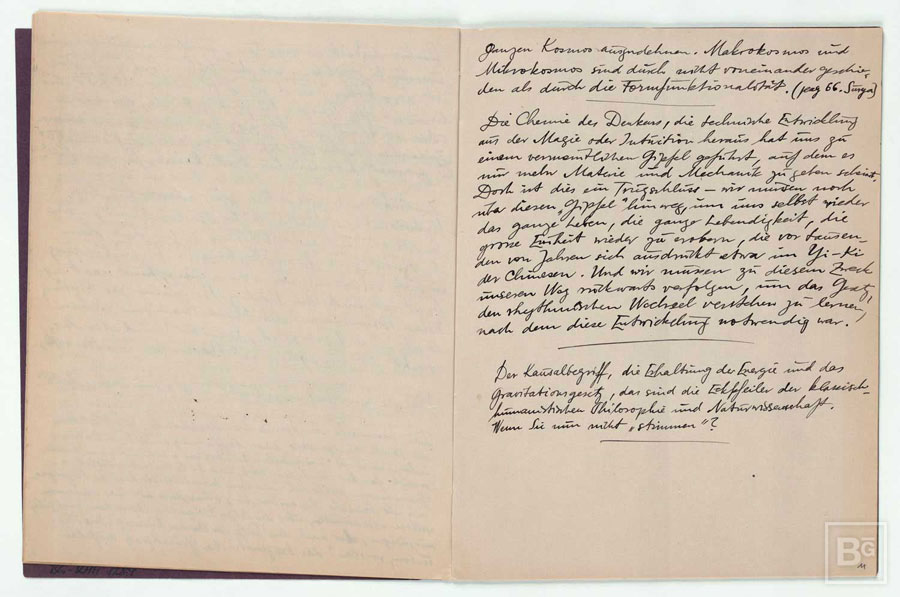 ganzen Kosmos auszudehnen. Makrokosmos und
Mikrokosmos sind durch nicht voneinander geschie-
den als durch die Formfunktionalität. (pag 66. Surya)
Die Chemie des Denkens, die technische Entwicklung
aus der Magie oder Intuition heraus hat uns zu
einem vermeintlichen Gipfel geführt, auf dem es
nur mehr Materie und Mechanik zu geben scheint.
Doch ist dies ein Trugschluss – wir müssen noch
über diesen "Gipfel" hinweg, um uns selbst wieder
das ganze Leben, die ganze Lebendigkeit, die
grosse Einheit wieder zu erobern, die vor tausen-
den von Jahren sich ausdrückt etwa im Yi-Ki
der Chinesen. Und wir müssen zu diesem Zweck
unseren Weg rückwärts verfolgen, um das Gesetz,
den rhythmischen Wechsel verstehen zu lernen,
nach dem diese Entwickelung notwendig war.
Der Kausalbegriff, die Erhaltung der Energie und das
Gravitationsgesetz, das sind die Eckpfeiler der klassisch-
humanistischen Philosophie und Naturwissenschaft.
Wenn Sie nun nicht „stimmen"?
BG
11